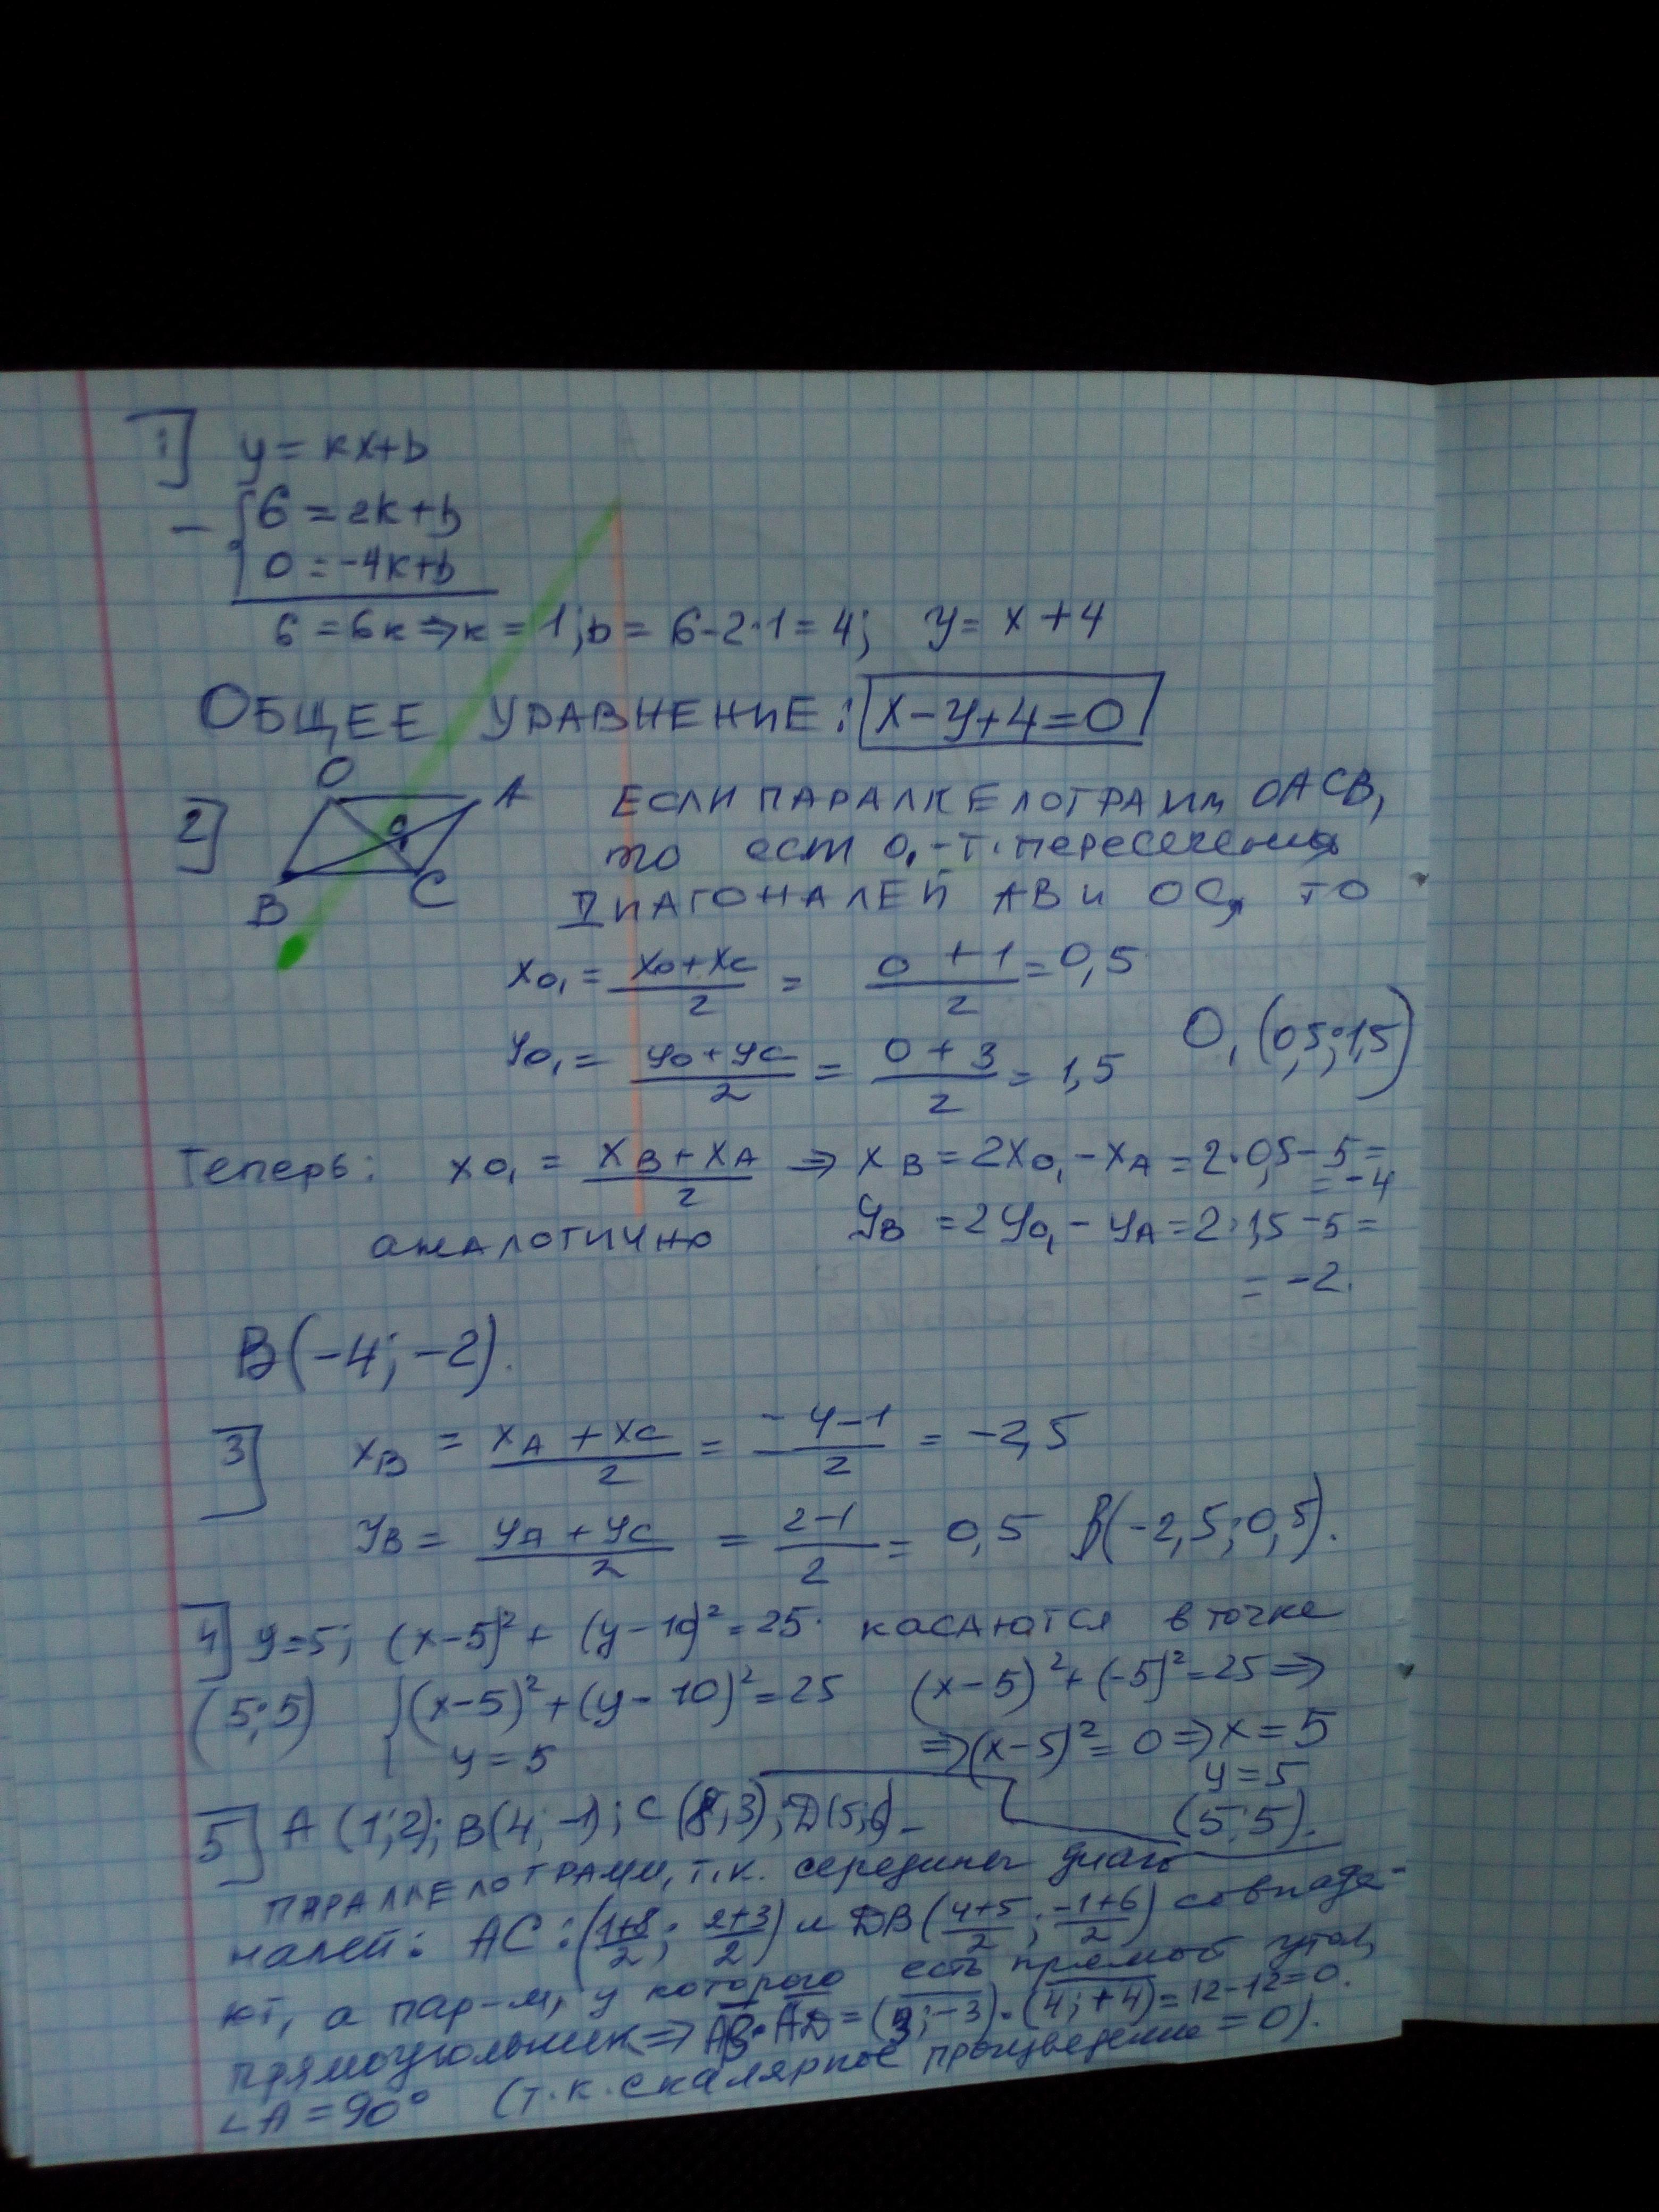 1] y = kx+b
- { 6 = 2k+b
0 = -4k+b
6 = 6k ⇒ k = 1; b = 6-2·1 = 4; y = x + 4
ОБЩЕЕ УРАВНЕНИЕ: x-y+4=0
2] O A B C O₁
ЕСЛИ ПАРАЛЛЕЛОГРАММ OACB,
то ест O₁-т. пересечения
ДИАГОНАЛЕЙ AB и OC, то
x_{O₁} = (x_O + x_C)/2 = (0 + 1)/2 = 0,5
y_{O₁} = (y_O + y_C)/2 = (0 + 3)/2 = 1,5 O₁(0,5; 1,5)
Теперь: x_{O₁} = (x_B + x_A)/2 ⇒ x_B = 2x_{O₁} - x_A = 2·0,5 - 5 =
= -4
аналогично y_B = 2y_{O₁} - y_A = 2·1,5 - 5 =
= -2.
B(-4; -2).
3] x_B = (x_A + x_C)/2 = (-4-1)/2 = -2,5
y_B = (y_A + y_C)/2 = (2-1)/2 = 0,5 B(-2,5; 0,5).
4] y=5; (x-5)² + (y-10)² = 25. касаются в точке
(5;5) { (x-5)² + (y-10)² = 25 (x-5)² + (-5)² = 25 ⇒
y = 5 ⇒ (x-5)² = 0 ⇒ x = 5
y = 5
(5;5).
5] A(1;2); B(4;-1); C(8;3); D(5;6) -
ПАРАЛЛЕЛОГРАММ, т.к. середины диаго
налей: AC: ((1+8)/2; (2+3)/2) и DB((4+5)/2; (-1+6)/2) совпада-
ют, а пар-м, у которого есть прямой угол,
прямоугольник ⇒ AB·AD = (3;-3)·(4;+4) = 12-12=0.
∠A = 90° (т.к. скалярное произведение = 0).